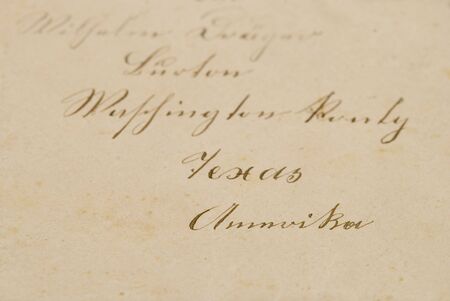 Wilhelm Dräger
Burton
Waschington Kounty
Texas
Amerika